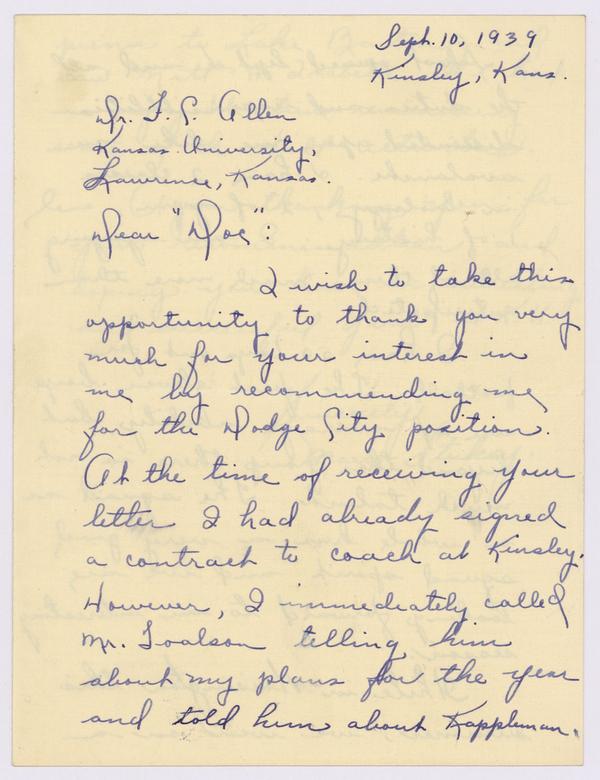 Sept. 10, 1939
Kinsley, Kans.
Dr. F. C. Allen
Kansas University,
Lawrence, Kansas.
Dear "Doc":
I wish to take this
opportunity to thank you very
much for your interest in
me by recommending me
for the Dodge City position.
At the time of receiving your
letter I had already signed
a contract to coach at Kinsley.
However, I immediately called
Mr. Toalson telling him
about my plans for the year
and told him about Kappleman.